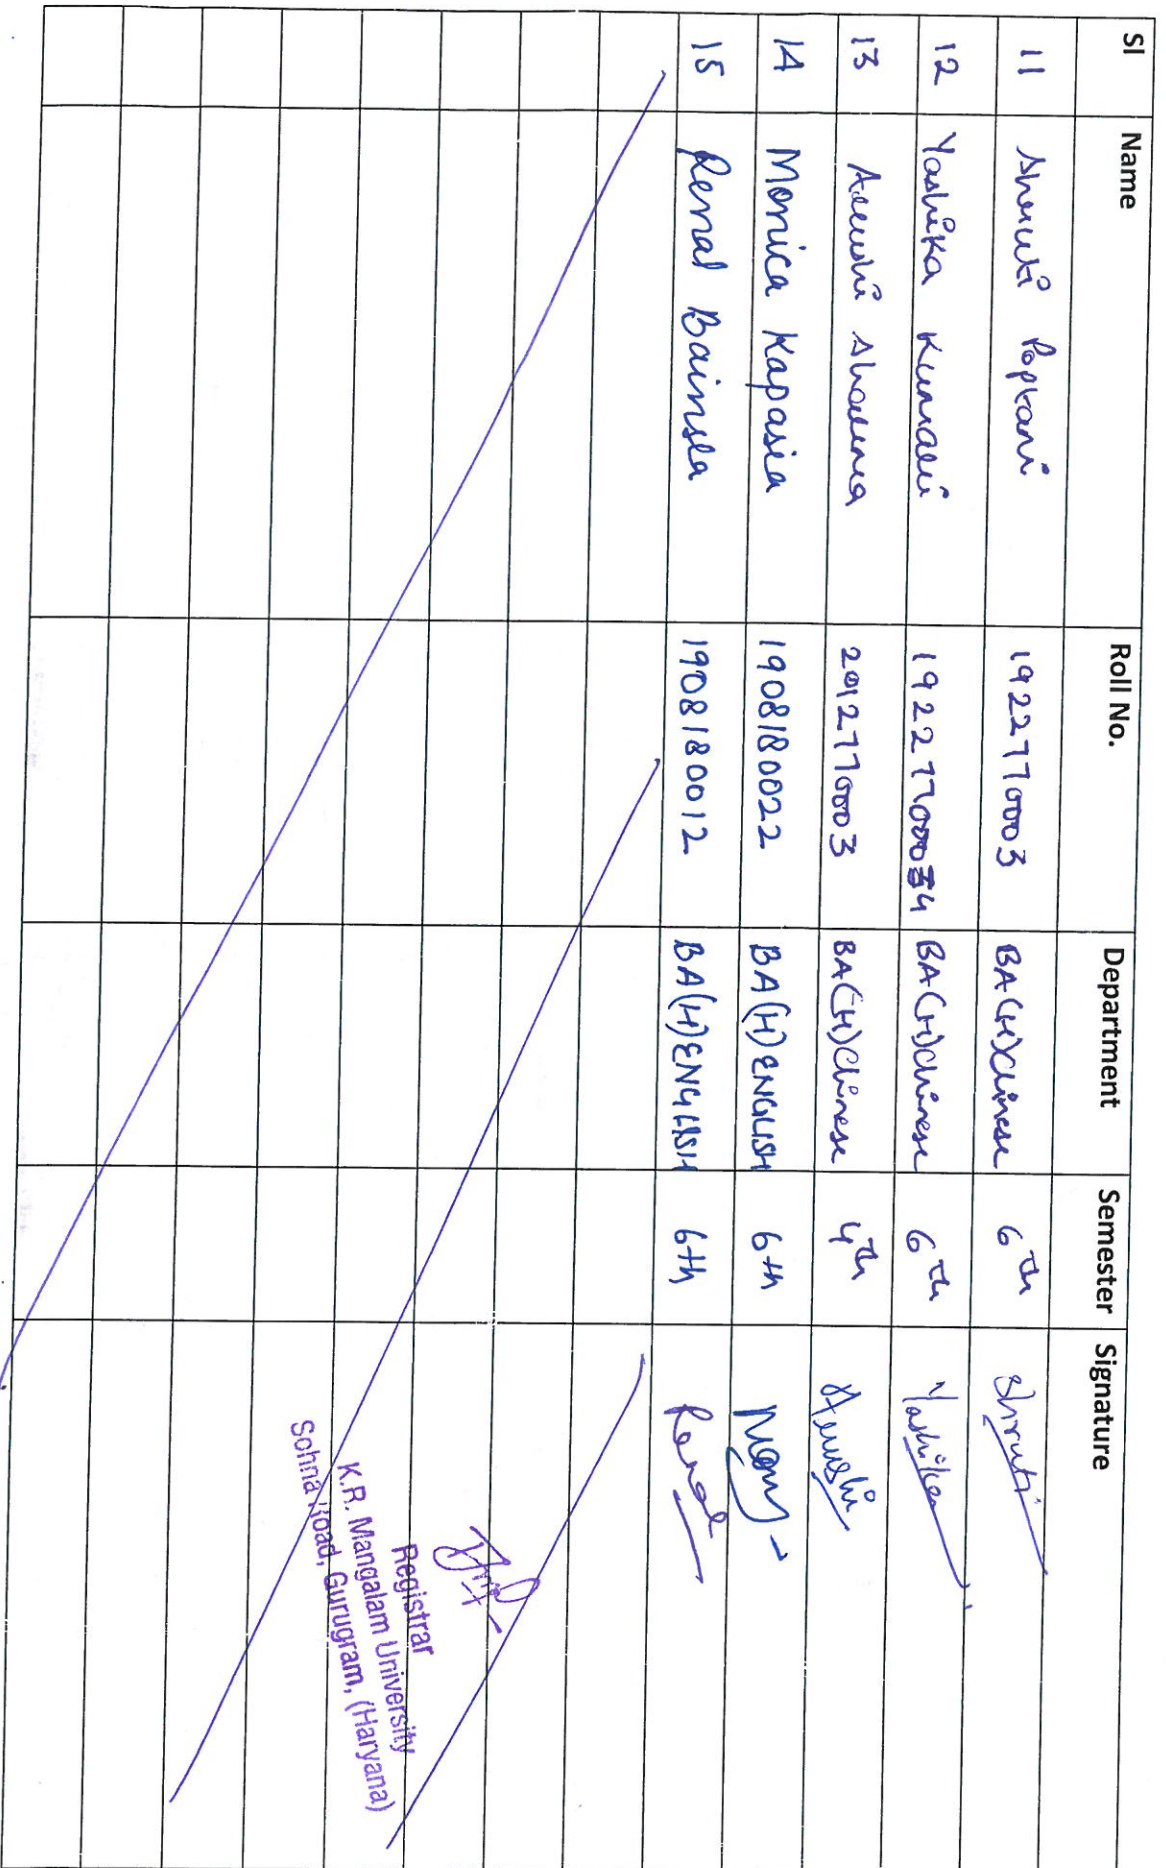 Sl Name Roll No. Department Semester Signature
11 Shruti Poptani 1922770003 BA(H)Chinese 6th Shruti
12 Yashika Kumari 1922770004 BA(H)Chinese 6th Yashika
13 Arushi Sharma 2012770003 BA(H)Chinese 4th Arushi
14 Monica Kapasia 1908180022 BA(H)ENGLISH 6th
15 Renal Bainsla 1908180012 BA(H)ENGLISH 6th Renal
Registrar
K.R. Mangalam University
Sohna Road, Gurugram, (Haryana)